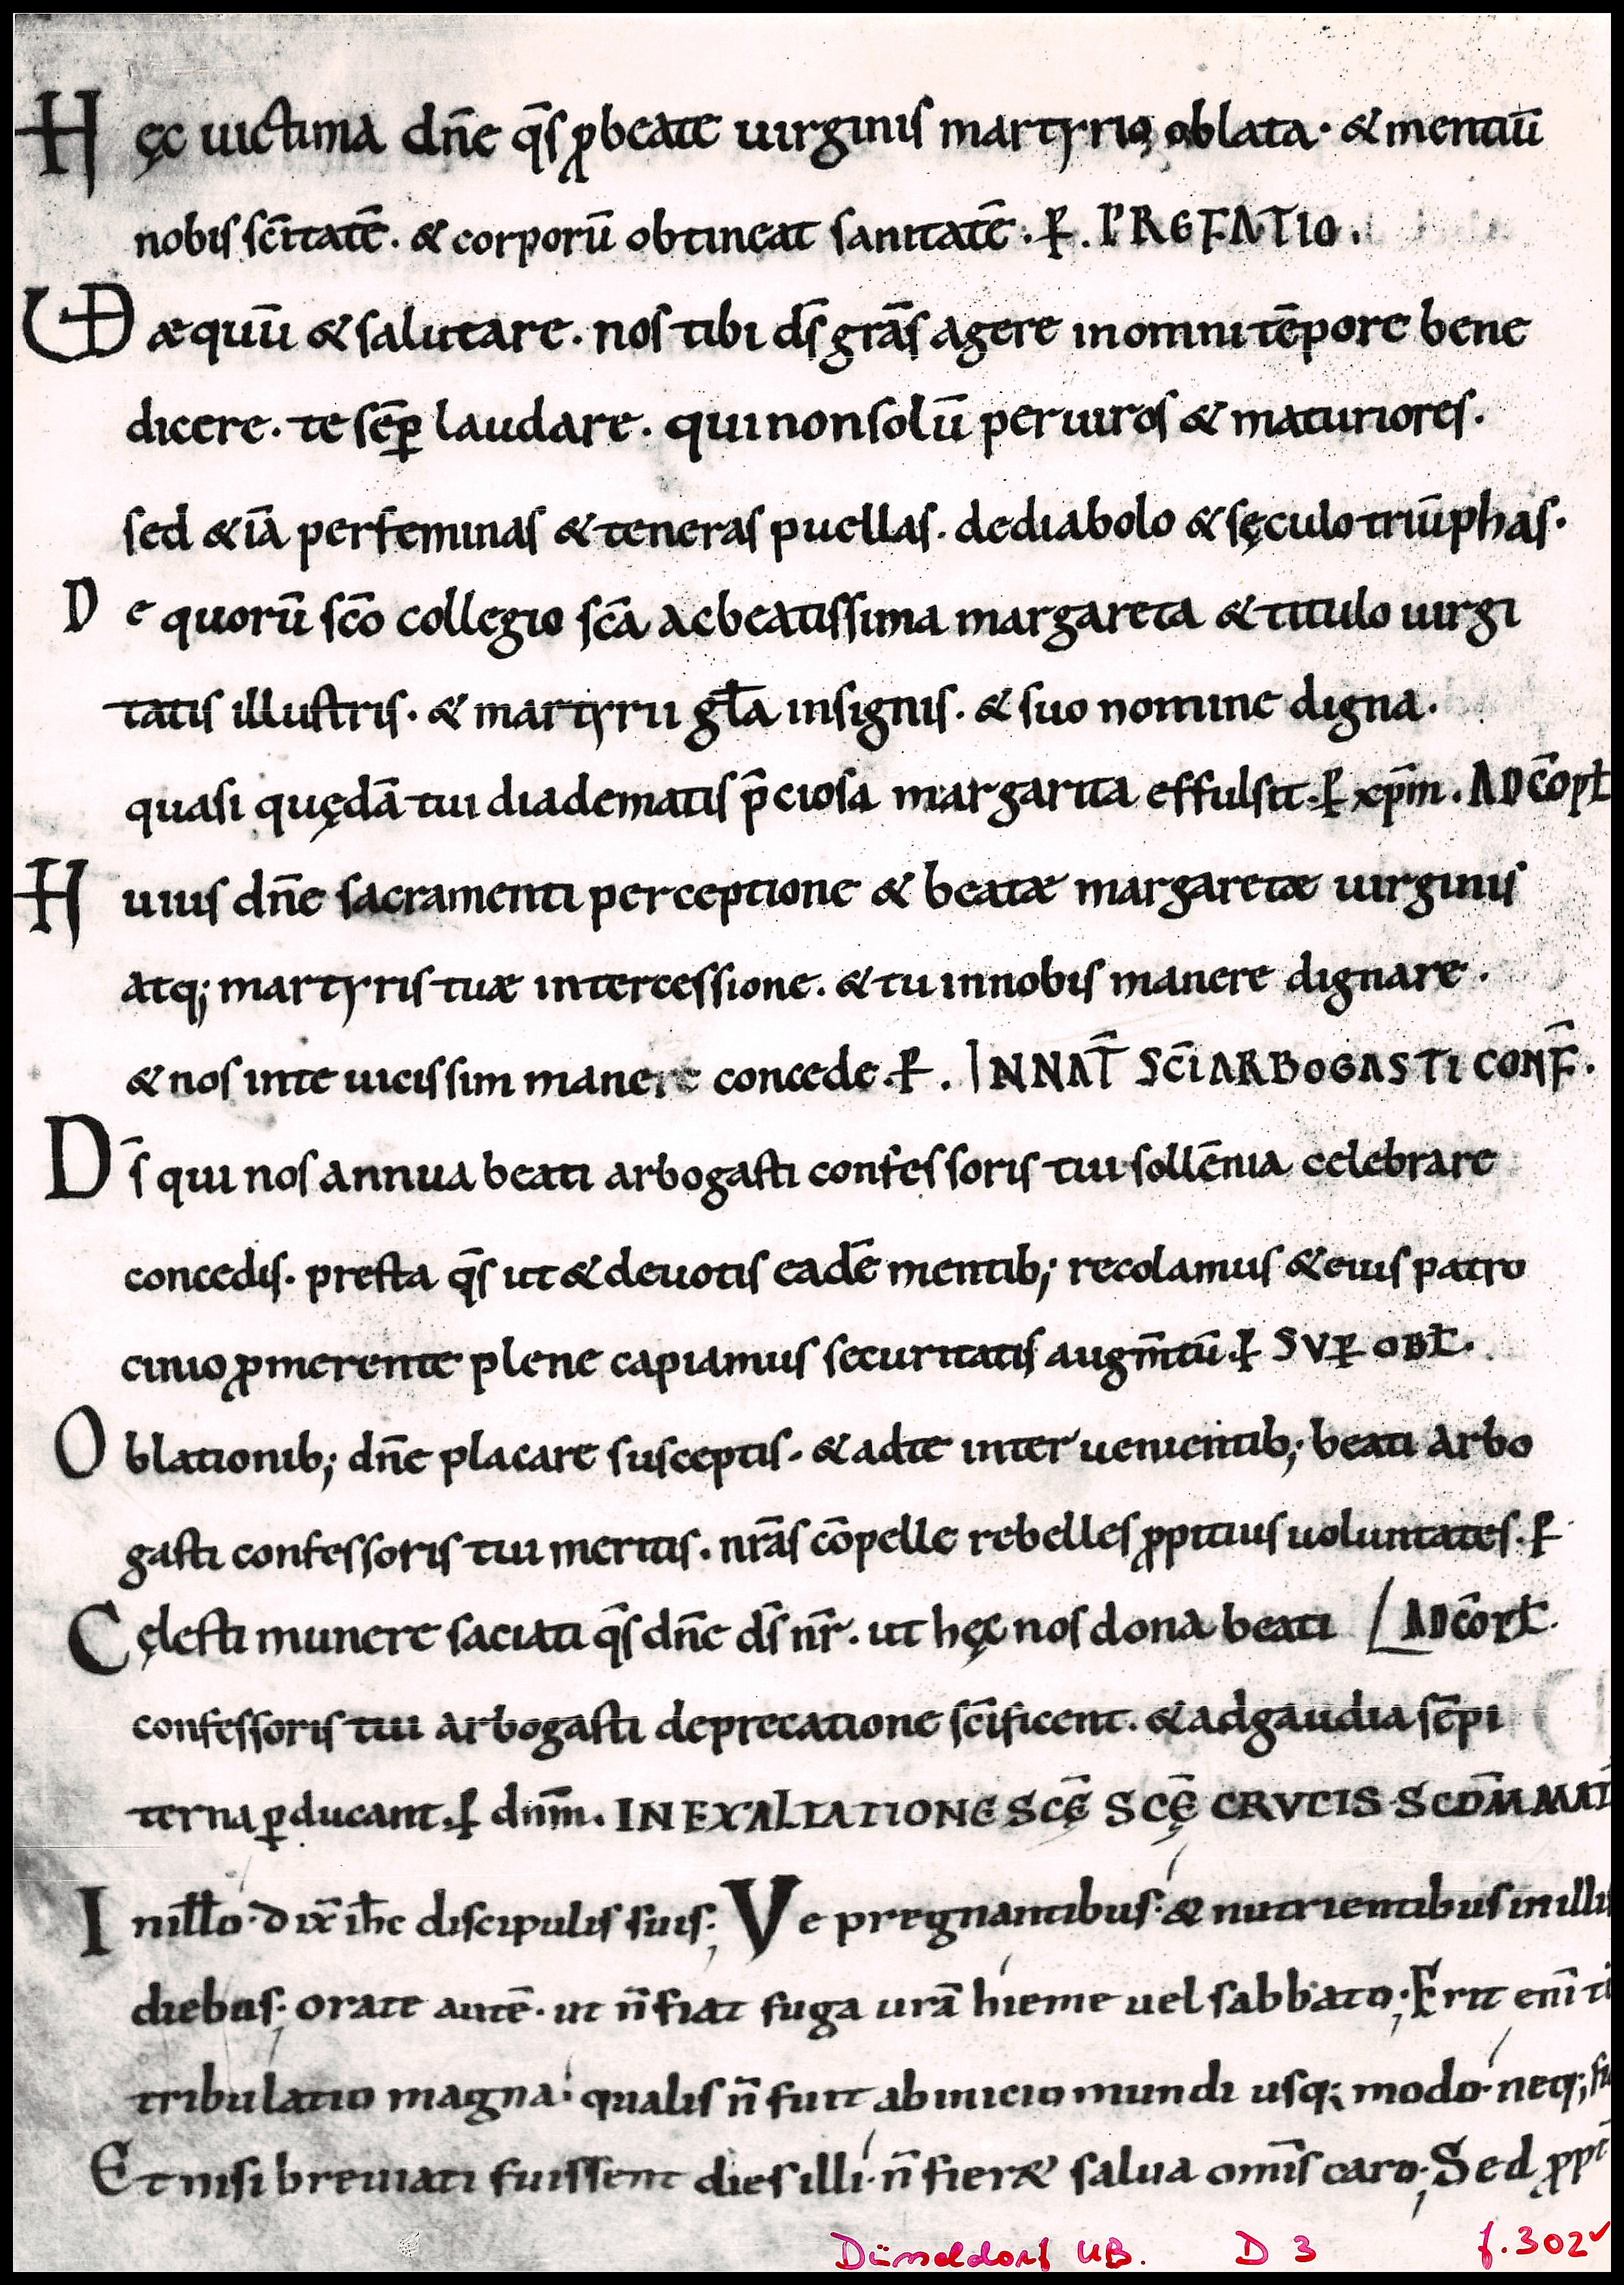 Hęc uictima dn̄e q̄s ꝓbeate uirginis martyrio oblata· & mentiū
nobis sc̄itatē· & corporū obtineat sanitatē·ꝑ. PREFATIO.
VD æquū & salutare· nos tibi ds̄ grās agere in omni tēpore bene
dicere· te sēꝑ laudare· qui non solū per uiros & maturiores·
sed & iā per feminas & teneras puellas· de diabolo & sęculo triūphas·
De quorū sc̄o collegio sc̄a ac beatissima margareta & titulo uirgi
tatis illustris· & martyrii gl̄a insignis· & suo nomine digna·
quasi quędā tui diadematis p̄ciosa margarita effulsit·ꝑ xp̄m. AD CŌPL̄
Huius dn̄e sacramenti perceptione & beatæ margaretæ uirginis
atq; martyris tuæ intercessione· & tu in nobis manere dignare·
& nos in te uicissim manere concede·ꝑ. IN NAT̄ SC̄I ARBOGASTI CONF̄.
Ds̄ qui nos annua beati arbogasti confessoris tui sollēnia celebrare
concedis· presta q̄s ut & deuotis eadē mentib; recolamus & eius patro
cinio ꝓmerente plene capiamus securitatis augm̄tū·ꝑ SVꝑ OBL̄.
Oblationib; dn̄e placare susceptis· & ad te interuenientib; beati Arbo
gasti confessoris tui meritis· nrās cōpelle rebelles ꝓpitius uoluntates·ꝑ
Cęlesti munere saciati q̄s dn̄e ds̄ nr̄· ut hęc nos dona beati / AD CŌPL̄.
confessoris tui arbogasti deprecatione sc̄ificent· & ad gaudia sēpi
terna ꝑducant·ꝑ dnm̄. IN EXALTATIONE SCĘ̄ SCĘ̄ CRVCIS SCDM̄ MAT̄
In illo· dix̄ ih̄c discipulis suis; Ve pregnantibus· & nutrientibus in illis
diebus; orate autē· ut n̄ fiat fuga urā hieme uel sabbato; Erit enī
tribulatio magna· qualis n̄ fuit ab inicio mundi usq; modo· neq;
Et nisi breuiati fuissent dies illi· n̄ fier& salua omīs caro; Sed ꝓpt̄
Düsseldorf UB. D 3 f.302v